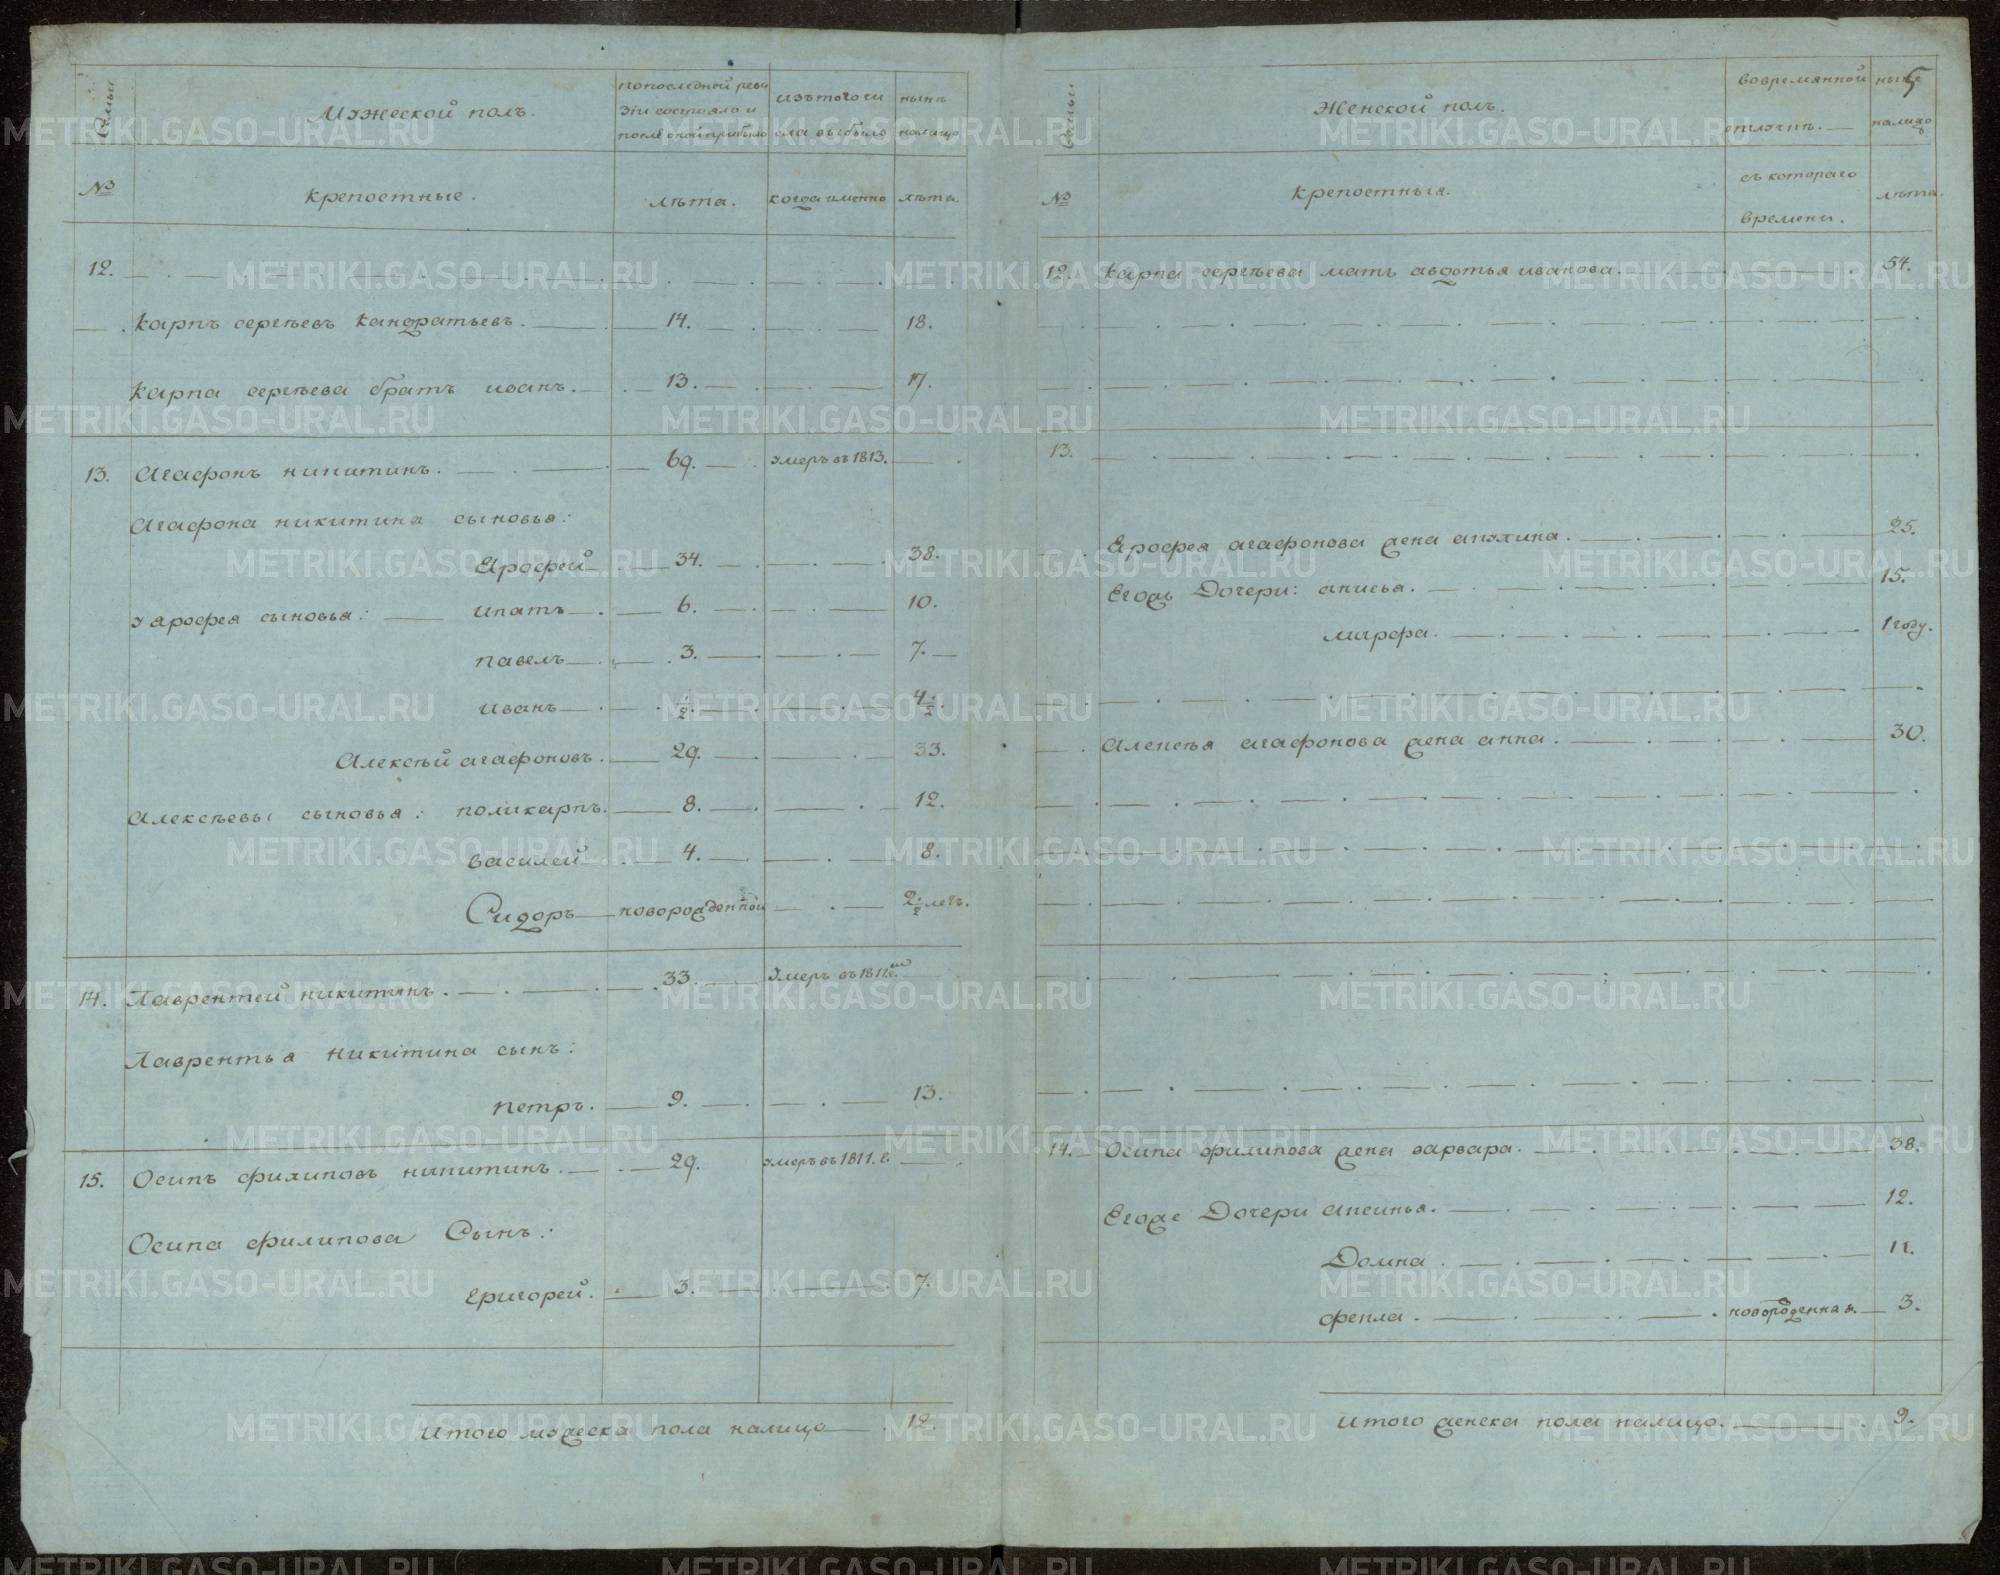 Семьи
Мужеской полъ.
попоследней реви
зіи состояло и
после оной прибыло
изъ того чи
сла выбыло
нынѣ
налицо
№
крепостные.
лѣта.
когда именно
лѣта.
12.
карпъ сергѣевъ кандратьевъ. 14. 18.
карпа сергѣева братъ иванъ. 13. 17.
13. Агафонъ никитинъ. 69. умеръ въ 1813.
Агафона никитина сыновья:
Ярофей 34. 38.
Уярофея сыновья: ипатъ 6. 10.
павелъ 3. 7.
иванъ 1/2. 4 1/2.
Алексѣй агафоновъ. 29. 33.
Алексѣевы сыновья: поликарпъ. 8. 12.
василей 4. 8.
Сидоръ новорожденной 2 1/2 летъ.
14. Лаврентей никитинъ. 33. Умеръ въ 1812.
Лаврентья никитина сынъ:
петръ. 9. 13.
15. Осипъ филиповъ никитинъ. 29. умеръ въ 1811. г.
Осипа филипова Сынъ:
григорей. 3. 7.
Итого мужеска пола налицо 12.
5
Семьи
Женской полъ.
вовремянной
отлучкѣ.
ныне
налицо
№
крепостныя.
съ котораго
времени.
лѣта.
12. карпа сергѣева мать авдотья иванова. 54.
13.
Ярофея агафонова жена акулина. 25.
Егожъ Дочери: анисья. 15.
марфа. 1 году.
Алексѣя агафонова жена анна. 30.
14. Осипа филипова жена варвара. 38.
Егоже Дочери аксинья. 12.
Домна. 11.
фекла. новорожденная. 3.
Итого женска пола налицо. 9.
METRIKI.GASO-URAL.RU